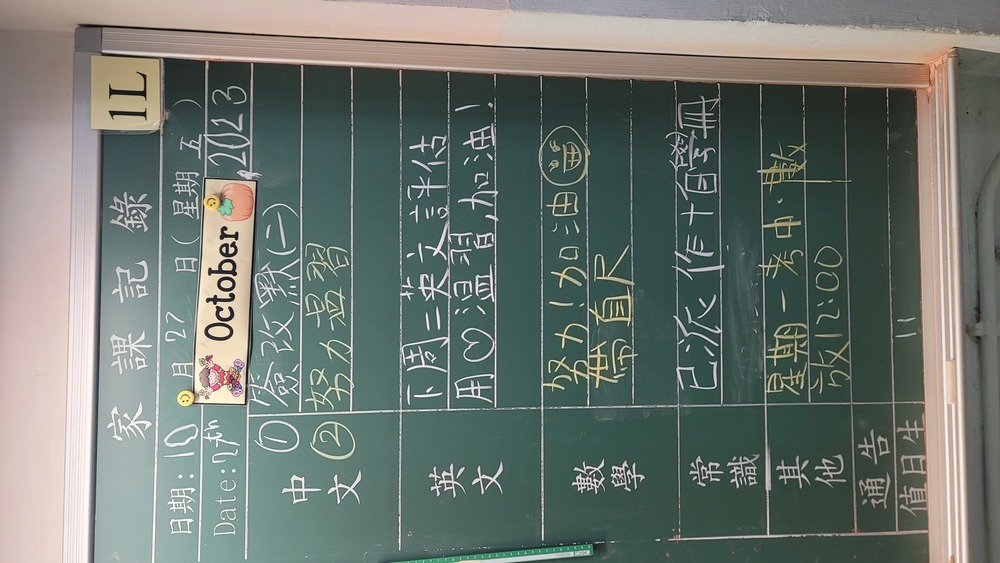 1L
家課記錄
日期: 10 月 27 日 (星期 五 )
Date: 27th October 2023
中文
① 簽改默(二)
② 努力溫習
英文
下周二英文評估
用♡溫習,加油!
數學
努力!加油
帶直尺
常識
已派作+自學冊
其他
星期一考中、數
放12:00
通告
值日生 11